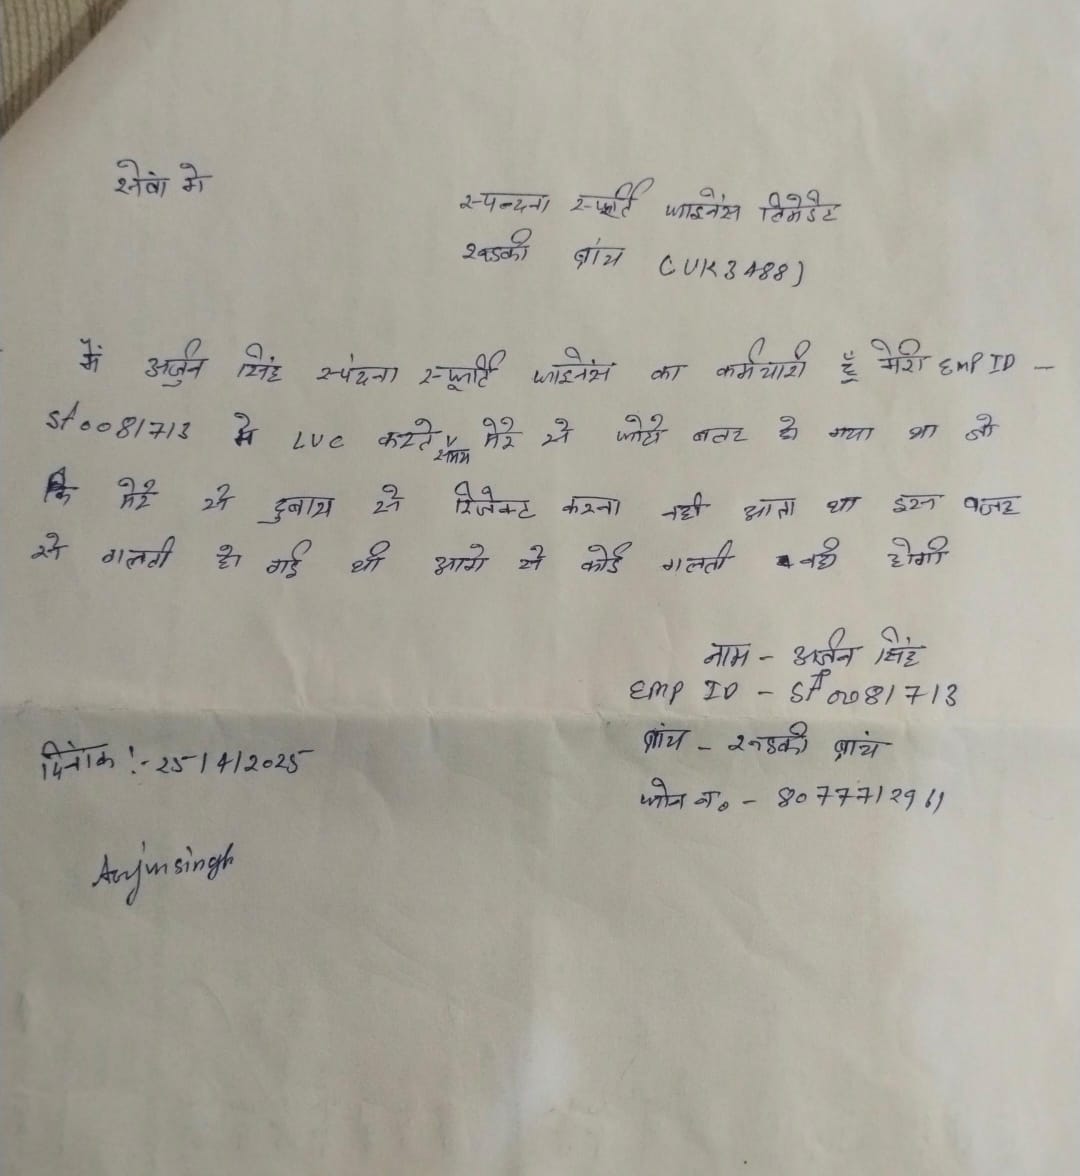 सेवा मे
स्पन्दना स्फूर्ति फाइनेंस लिमेडेट
रूडकी ब्रांच (UK3488)
में अर्जुन सिंह स्पंदना स्फूर्ति फाइनेंस का कर्मचारी हूँ मेरी EMP ID -
Sf0081713 मे LUC करते समय मेरे से फोटो बलर हो गया था जो
कि मेरे से दुबारा से रिजेक्ट करना नही आता था इस वजह
से गलती हो गई थी आगे से कोई गलती नही होगी
नाम - अर्जुन सिंह
EMP ID - Sf0081713
ब्रांच - रूडकी ब्रांच
दिनांक :- 25/4/2025
फोन न० - 8077712961
Arjunsingh